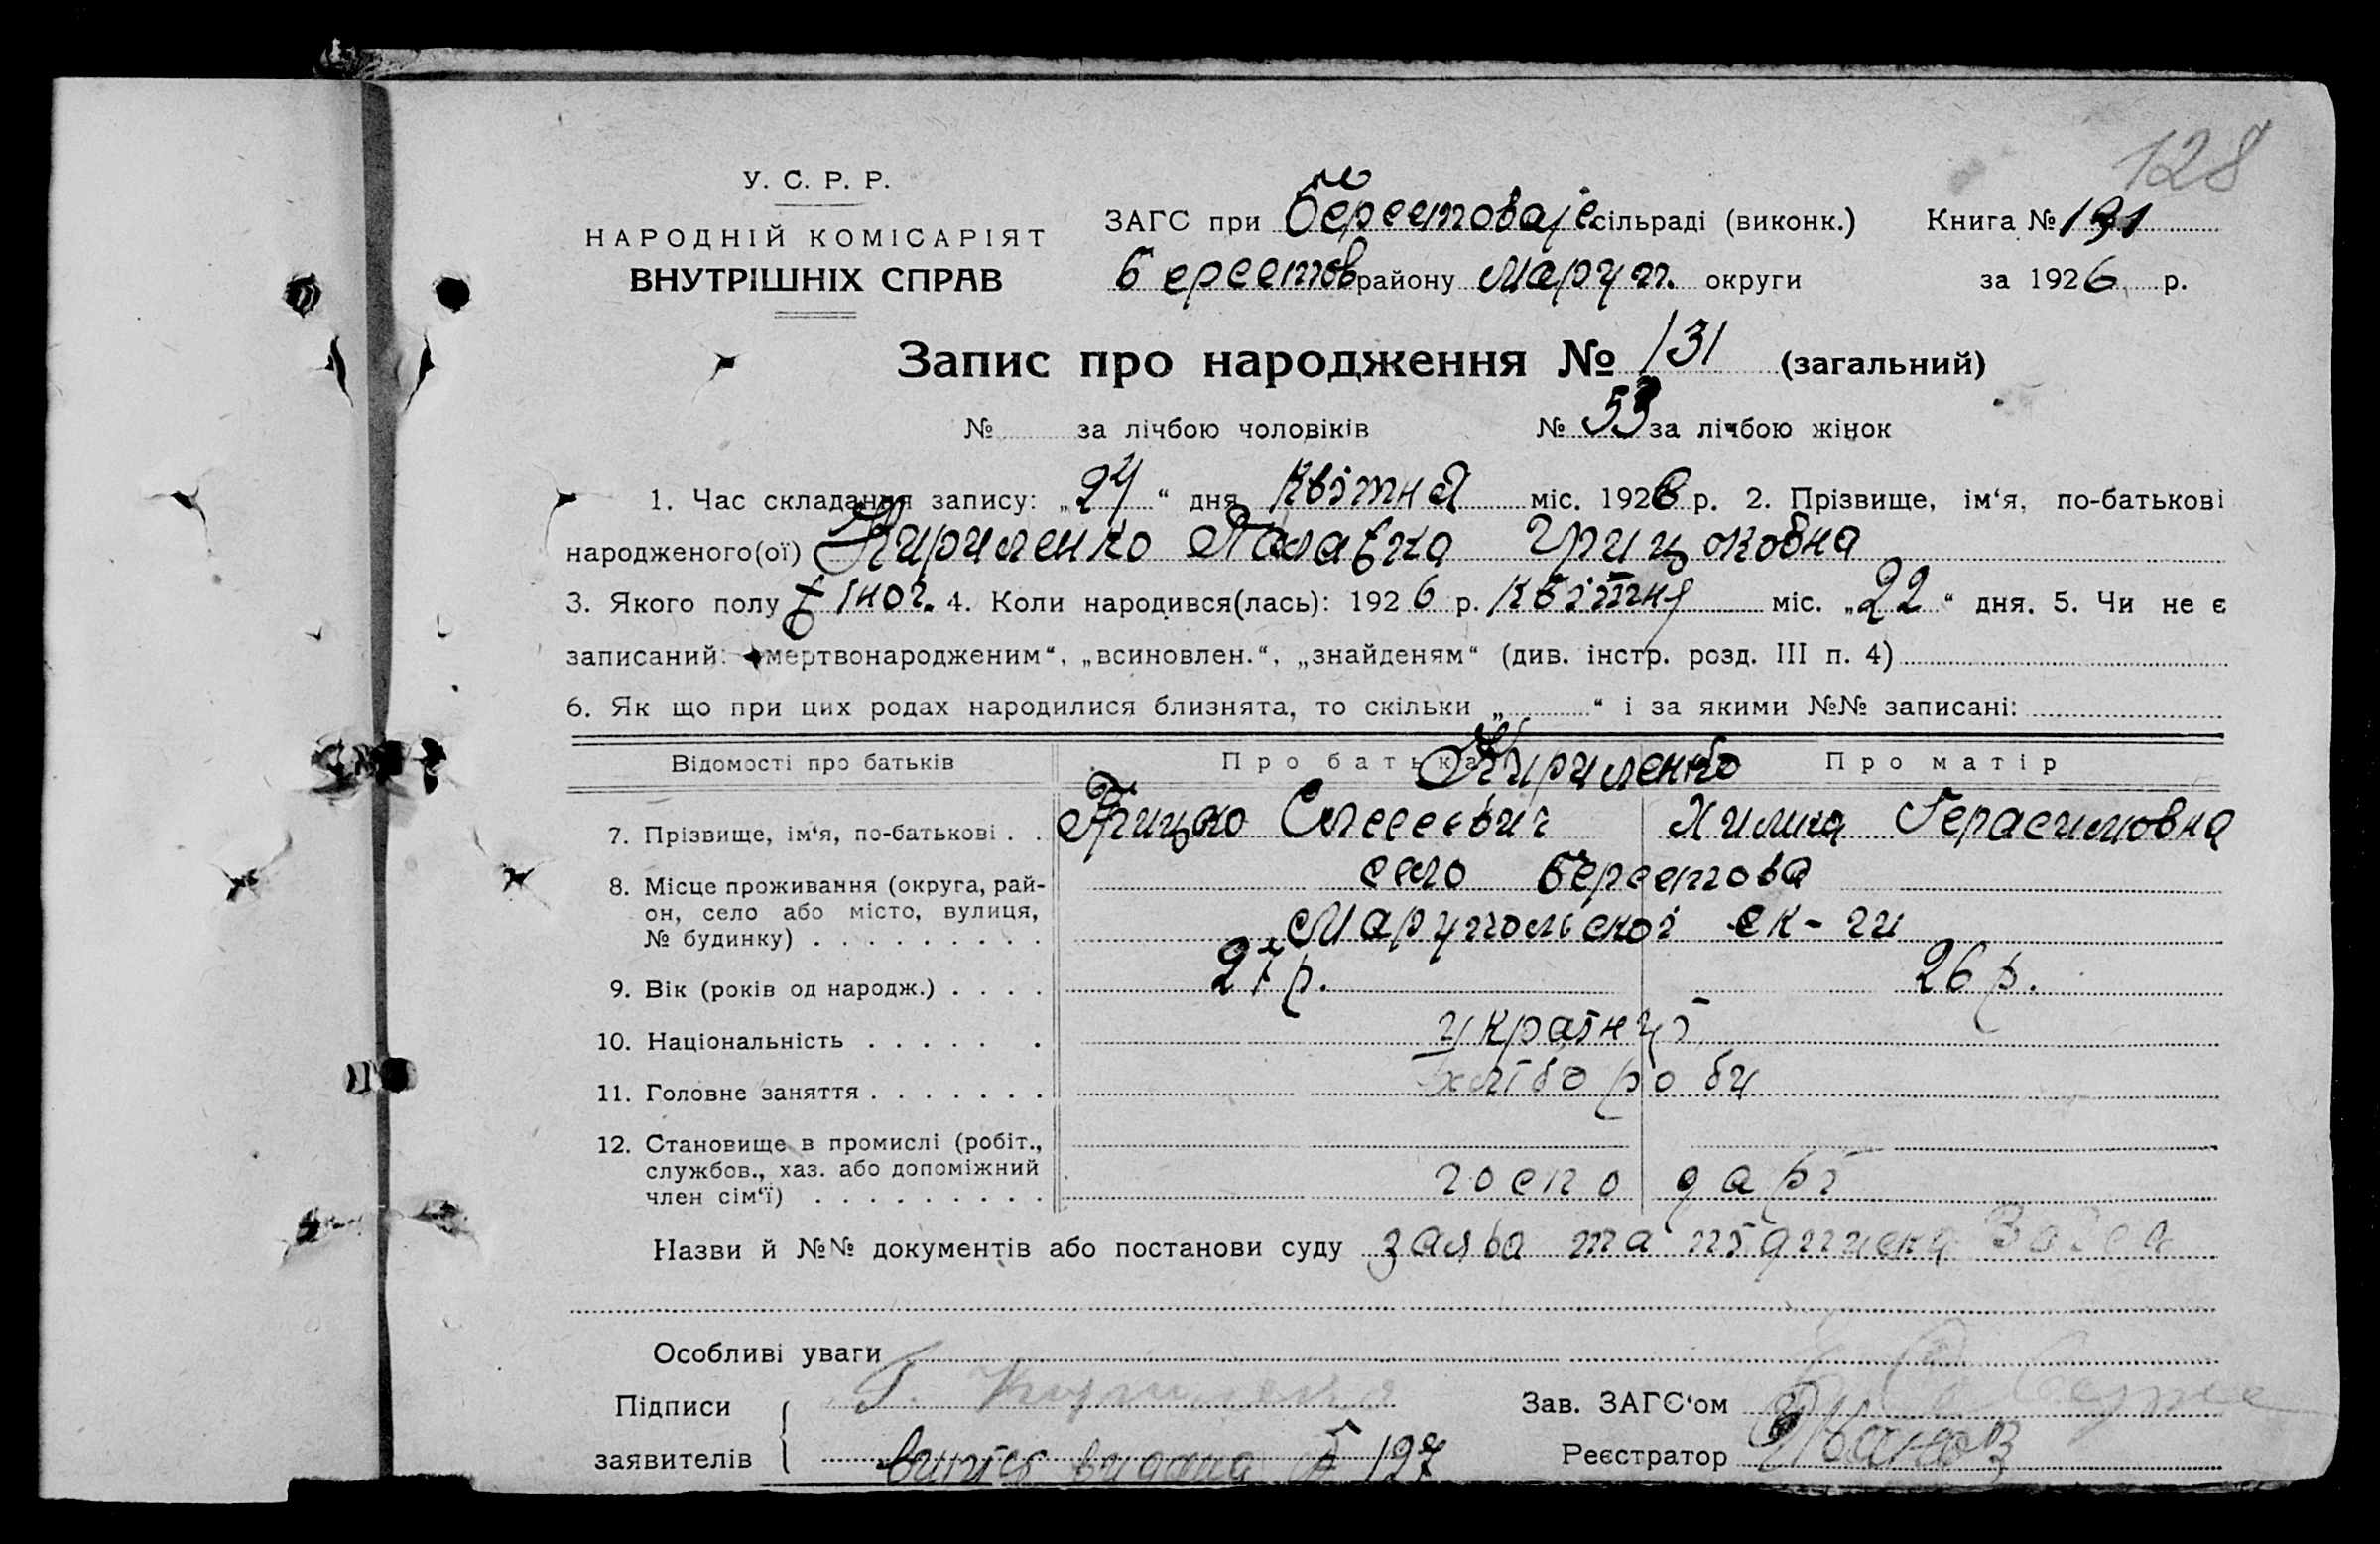 128
У. С. Р. Р.
НАРОДНІЙ КОМІСАРІЯТ
ВНУТРІШНІХ СПРАВ
ЗАГС при сільраді (виконк.) Книга № 191
Берестов району Маруп. округи за 1926 р.
Запис про народження № 131 (загальний)
№ за лічбою чоловіків № 53 за лічбою жінок
1. Час складання запису: „24“ дня Квітня міс. 1926 р. 2. Прізвище, ім‘я, по-батькові
народженого(ої) Кириленко Грицьковна
3. Якого полу жіноч. 4. Коли народився(лась): 1926 р. Квітня міс. „22“ дня. 5. Чи не є
записаний: „мертвонародженим“, „всиновлен.“, „знайденям“ (див. інстр. розд. III п. 4)
6. Як що при цих родах народилися близнята, то скільки „ “ і за якими №№ записані:
Відомості про батьків Про батька Про матір
Кириленко
7. Прізвище, ім‘я, по-батькові . . Грицько Хима Герасимовна
8. Місце проживання (округа, рай-
он, село або місто, вулиця,
№ будинку) . . . . . . . . .
село Берестова
Марупольскої ок-ги
9. Вік (років од народж.) . . . . 27 р. 26 р.
10. Національність . . . . . . україн​ці
11. Головне заняття . . . . . . . хлібороби
12. Становище в промислі (робіт.,
службов., хаз. або допоміжний
член сім‘ї) . . . . . . . . . господарі
Назви й №№ документів або постанови суду заява та підписка
Особливі уваги
Підписи
заявителів
Г. Кириленко
видана 127
Зав. ЗАГС‘ом
Реєстратор